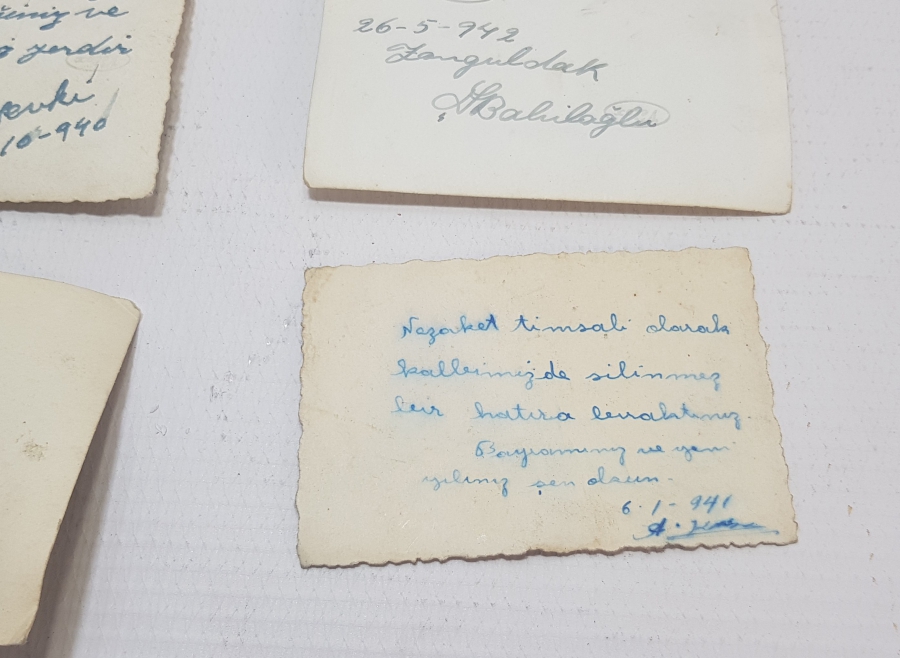 ve
yerdir
10-940
26-5-942
Zonguldak
Bahiloğlu
Nezaket timsali olarak
kalbimizde silinmez
bir hatıra bıraktınız.
Bayramınız ve yeni
yılınız şen olsun.
6.1-941
A.